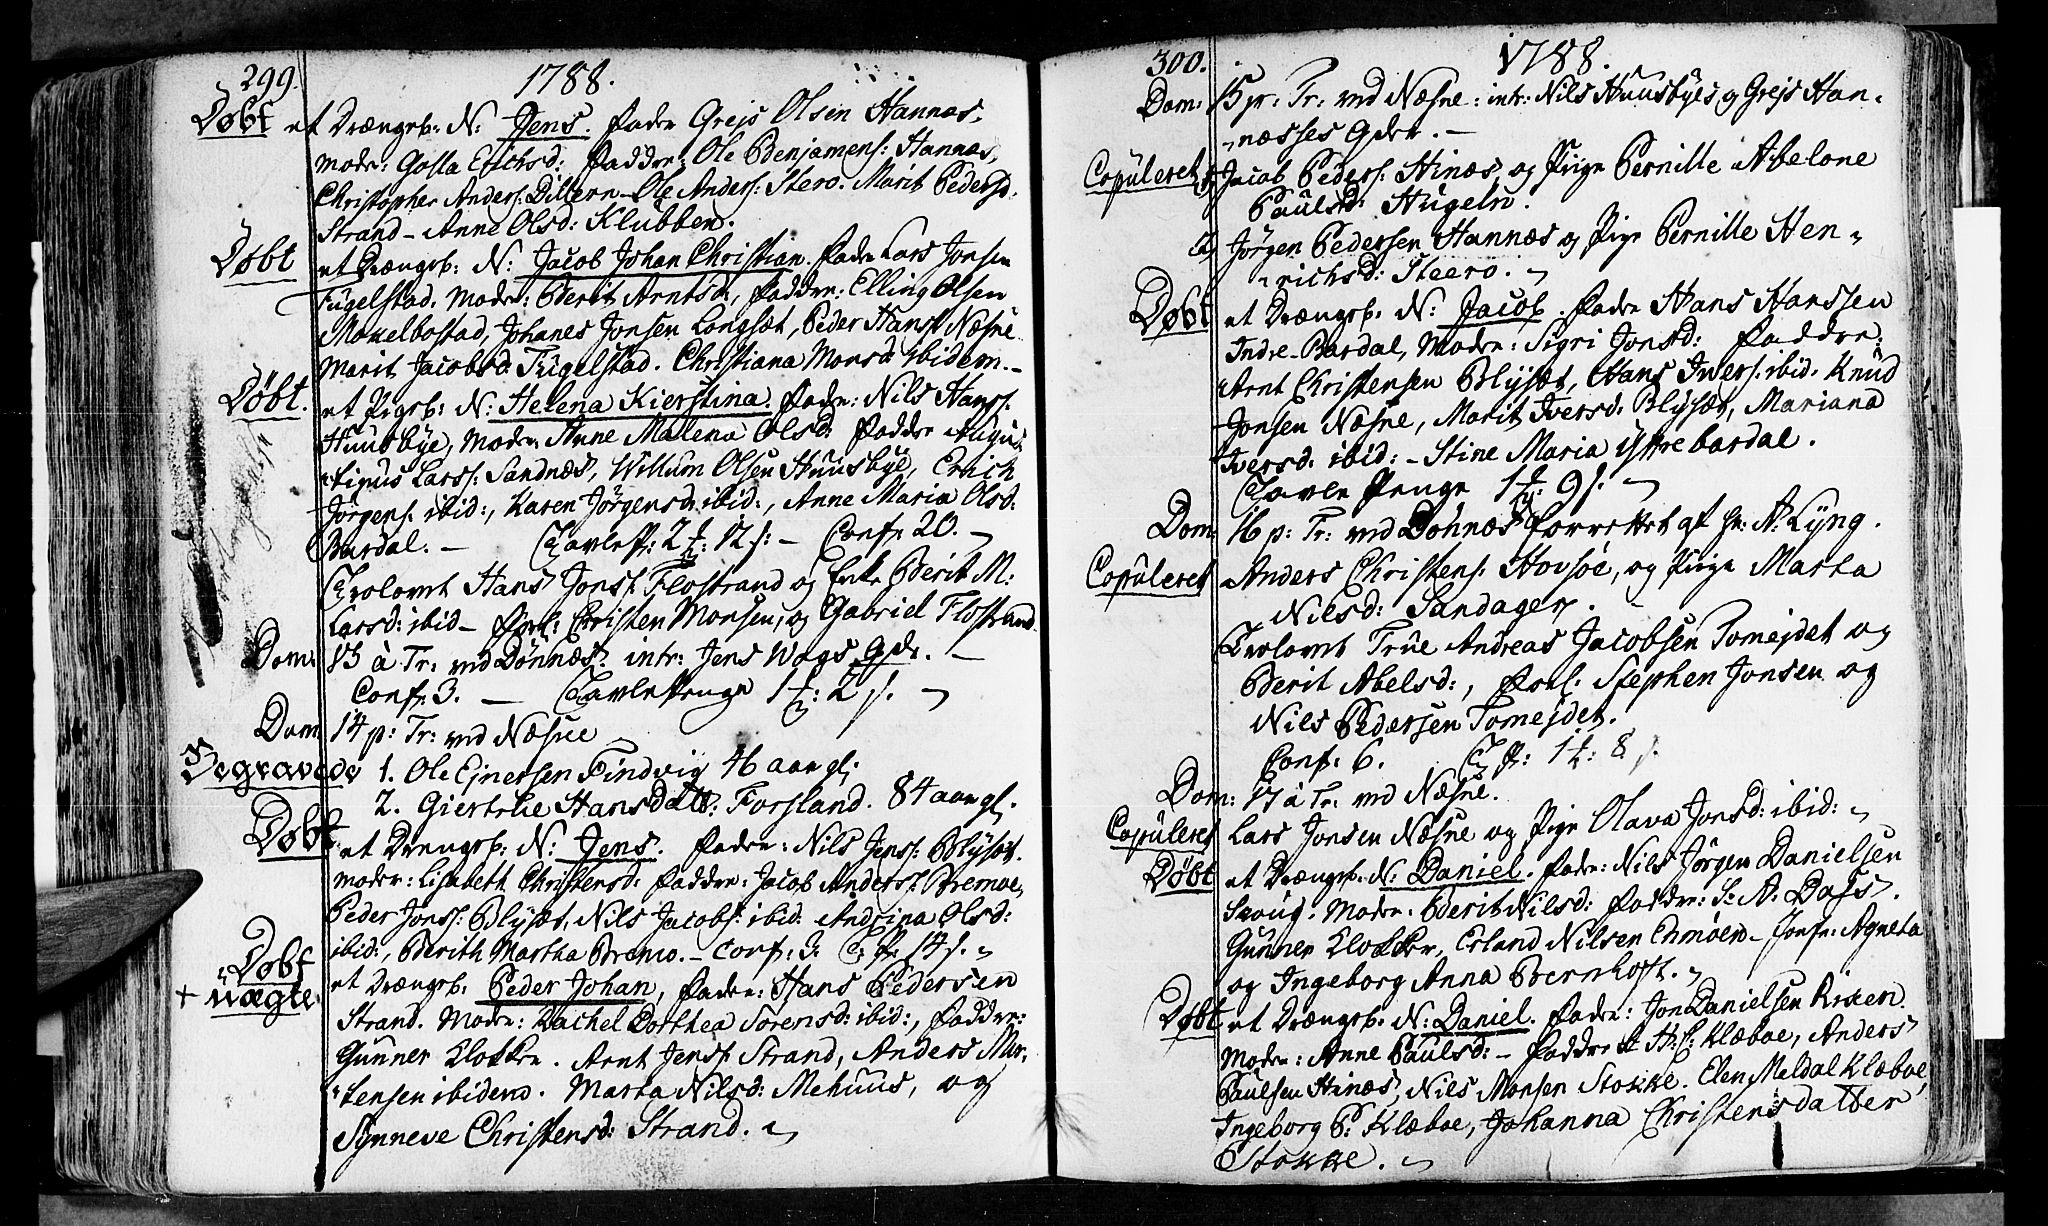 299. 1788.
Døbt et Drængeb: N: Jens. Fader Grejs Olsen Hannæs.
Moder: Golla Erichsd: Faddre: Ole Benjamens: Hannæs,
Christopher Anders: Dillern – Ole Anders: Stero. Marit Pedersd.
Strand – Anne Olsd: Klubben.
Døbt et Drængeb: N: Jacob Johan Christian. Fader Lars Jonsen
Fugelstad. Moder: Berit Arntsd:, Faddre: Elling Olsen
Mouelbostad, Johanes Jonsen Langset, Peder Hans: Næsne
Marit Jacobsd Fugelstad. Christiana Monsd ibidem. –
Døbt. et Pigeb: N: Helena Kierstina. Fader: Nils Hans:
Huusbye, Moder Anne Malena Olsd: Faddre Augu-
stinus Lars: Sandnæs, Willum Olsen Huusbye, Erich
Jørgens: ibid:, Karen Jørgensd: ibid:, Anne Maria Olsd:
Bardal. – Tavlep: 2 12 s: – Conf: 20. –
Trolovet Hans Jons: Flostrand og Enke Berit M:
Larsd: ibid – Forl: Christen Monsen, og Gabriel Flostrand.
Dom: 13 à Tr: ved Dønnæs. intr: Jens Wags Qde. –
Conf: 3. – Tavlepenge 1 : 2 s. –
Dom 14 p: Tr: ved Næsne
Begravede 1. Ole Ejnersen Findvig 46 aar gl:
2. Giertrue Hansdatt: Forsland. 84 aar gl.
Døbt et Drengeb: N: Jens. Fader: Nils Jens: Blyset.
Moder: Lisabeth Christensd: Faddre: Jacob Anders: Bremoe,
Peder Jons: Blysæt, Nils Jacobs: ibid: Andrina Olsd:
ibid:, Berith Martha Bremo. – Conf: 3. T: P: 14 s. –
Døbt et Drængeb: Peder Johan, Fader: Hans Pedersen
+ uægte Strand. Moder: Rachel Dorthea Sørensd: ibid:, Faddre:
Gunner Klokker. Arnt Jens: Strand, Anders Mor-
tensen ibidem. Marta Nilsd: Mehuus, og
Synneve Christensd: Strand.
300. 1788.
Dom: 15 p: Tr: ved Næsne: intr: Nils Huusbyes, og Grejs Han-
næsses Qder. –
Copuleret Jacob Peders: Hinæs, og Pige Pernille Abelone
Paulsd: Hugeln.
Jørgen Pedersen Hannæs og Pige Pernille Hen-
richsd: Steero. –
Døbt et Drængeb: N: Jacob. Fader Hans Hanssen
Indre-Bardal, Moder: Sigri Jonsd: Faddre:
Arnt Christensen Blysæt, Hans Ivers: ibid. Knud
Jonsen Næsne, Marit Iversd: Blysæt, Mariana
Iversd: ibid: – Stine Maria yttrebardal.
Tavle Penge 1 : 9 s. –
Dom: 16 p: Tr: ved Dønæs forrettet af Hr: A: Lyng.
Copuleret Anders Christens: Hovsøe, og Pige Marta
Nilsd: Sandager.
Trolovet True Andreas Jacobsen Tomejdet og
Berit Abelsd:, Forl: Stephen Jonsen og
Nils Pedersen Tomejdet.
Conf: 6. T: P: 1 : 8 s.
Dom: 17 à Tr: ved Næsne.
Copuleret Lars Jonsen Næsne og Pige Olava Jonsd: ibid: –
Døbt et Drængeb: N: Daniel. Fader: Nils Jørgen Danielsen
Skoug. Moder: Berit Nilsd: Faddre: S: A: Dass.
Gunner Klokker, Erland Nilsen Enmoen – Jomfr: Agneta
og Ingeborg Anna Bernhoft. –
Døbt et Drængeb: N: Daniel. Fader: Jon Danielsen Risen
Moder: Anne Paulsd: – Faddre H: C: Klæboe, Anders
Paulsen Hinæs, Nils Monsen Stokke. Elen Meldal Klæboe,
Ingeborg P: Klæboe, Johanna Christensdatter
Stokke. –